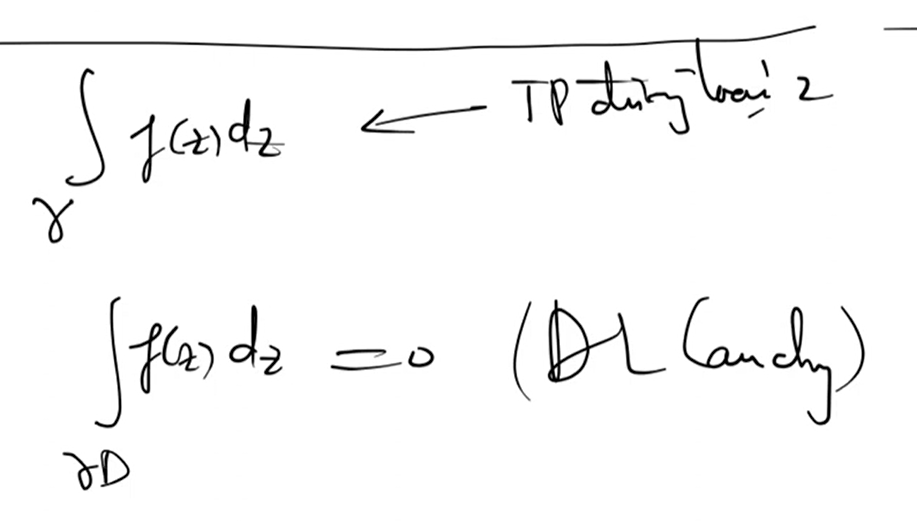 ∫_γ f(z)dz ← TP đường loại 2
∫_{∂D} f(z) dz = 0 (ĐL Cauchy)